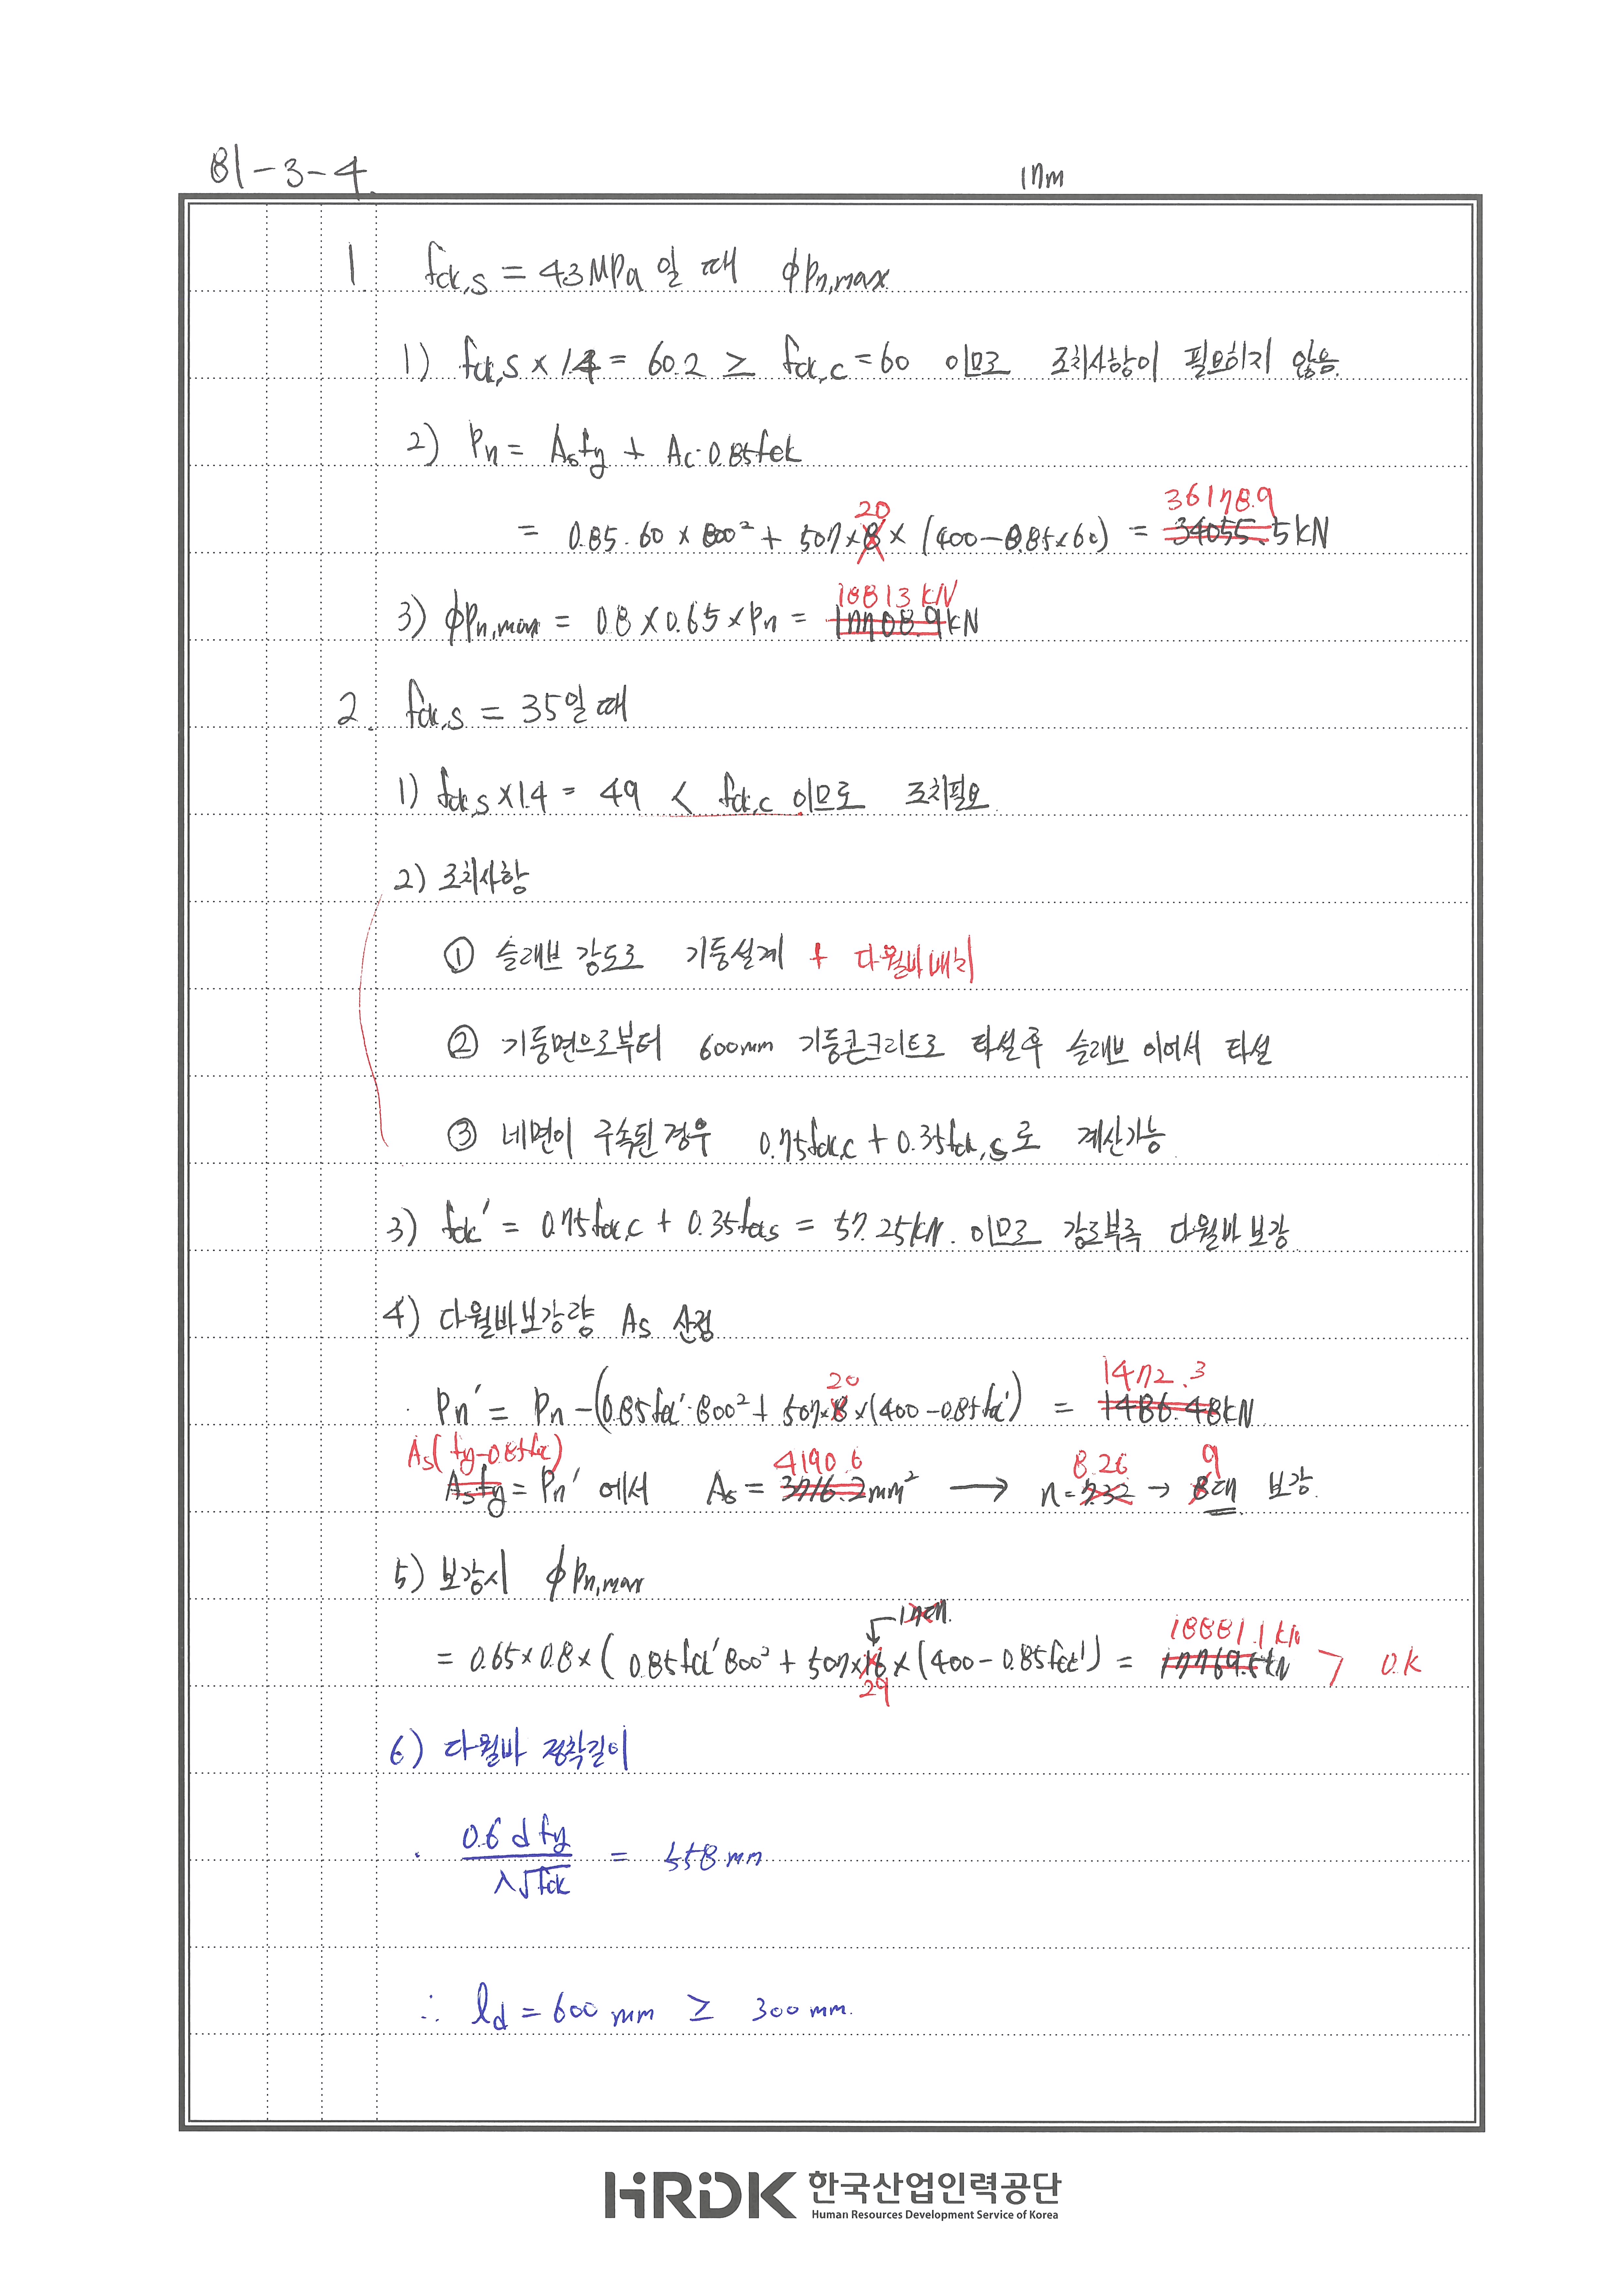 81-3-4.
17m
1. fck,s = 43MPa 일 때 ϕPn,max
1) fck,s × 1.4 = 60.2 ≥ fck,c = 60 이므로 조치사항이 필요하지 않음.
2) Pn = Asfy + Ac·0.85fck
20
36178.9
= 0.85·60 × 800² + 507×8× (400-0.85×60) = 34055.5kN
18813 kN
3) ϕPn,max = 0.8 × 0.65 × Pn = 17708.9kN
2. fck,s = 35일 때
1) fck,s ×1.4 = 49 < fck,c 이므로 조치필요.
2) 조치사항
① 슬래브 강도로 기둥설계 + 다월바 배치
② 기둥면으로부터 600mm 기둥콘크리트로 타설후 슬래브 이어서 타설
③ 네면이 구속된 경우 0.75fck,c + 0.35fck,s로 계산가능.
3) fck' = 0.75fck,c + 0.35fck,s = 57.25kN. 이므로 강도부족 다월바 보강.
4) 다월바보강량 As 산정
20
1472.3
· Pn' = Pn - (0.85fck'·800² + 507×8×(400-0.85fck')) = 1486.48kN
As(fy-0.85fck)
4190.6
8.26
9
Asfy = Pn' 에서 As = 3716.2mm² → n = 7.32 → 8대 보강.
5) 보강시 ϕPn,max
17대.
18881.1 kN
= 0.65×0.8×( 0.85fck'800² + 507×16×(400-0.85fck')) = 17769.5kN > O.K
29
6) 다월바 정착길이
· 0.6 d fy / λ√fck = 558 mm
∴ ld = 600 mm ≥ 300 mm.
HRDK 한국산업인력공단
Human Resources Development Service of Korea